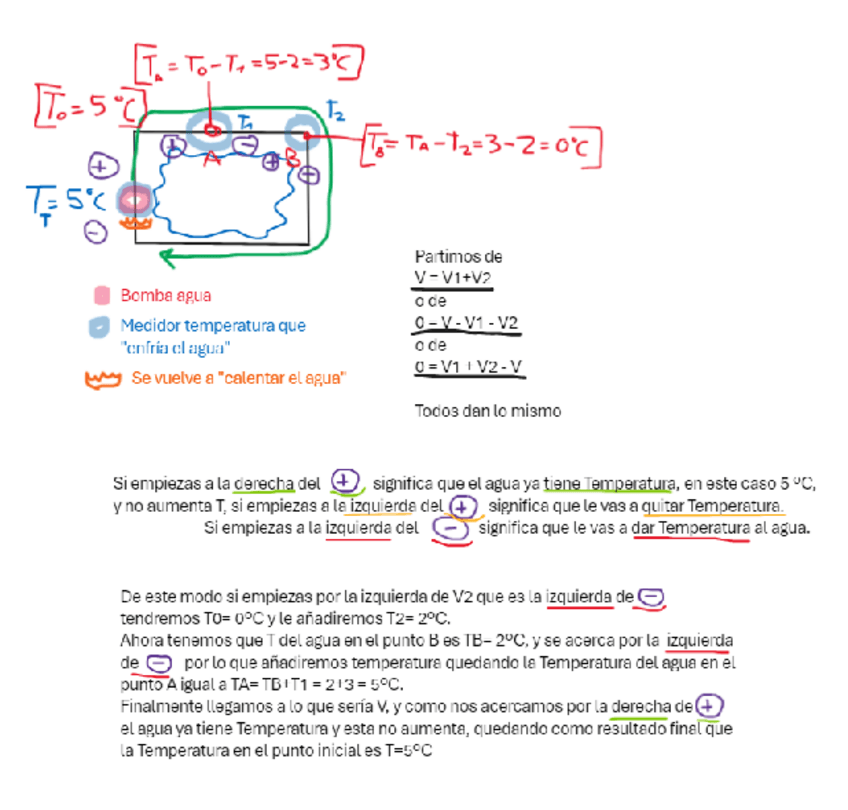 [TA = T0 - T1 = 5-2=3°C]
[T0 = 5°C]
T1
T2
[TB = TA - T2 = 3-2=0°C]
+
-
A
B
+
+
+
TT = 5°C
-
Partimos de
V = V1+V2
o de
0 = V - V1 - V2
o de
0 = V1 + V2 - V
Todos dan lo mismo
Bomba agua
Medidor temperatura que
"enfría el agua"
Se vuelve a "calentar el agua"
Si empiezas a la derecha del + significa que el agua ya tiene Temperatura, en este caso 5 ºC,
y no aumenta T, si empiezas a la izquierda del + significa que le vas a quitar Temperatura.
Si empiezas a la izquierda del - significa que le vas a dar Temperatura al agua.
De este modo si empiezas por la izquierda de V2 que es la izquierda de -
tendremos T0= 0ºC y le añadiremos T2= 2ºC.
Ahora tenemos que T del agua en el punto B es TB= 2ºC, y se acerca por la izquierda
de - por lo que añadiremos temperatura quedando la Temperatura del agua en el
punto A igual a TA= TB+T1 = 2+3 = 5ºC.
Finalmente llegamos a lo que sería V, y como nos acercamos por la derecha de +
el agua ya tiene Temperatura y esta no aumenta, quedando como resultado final que
la Temperatura en el punto inicial es T=5ºC